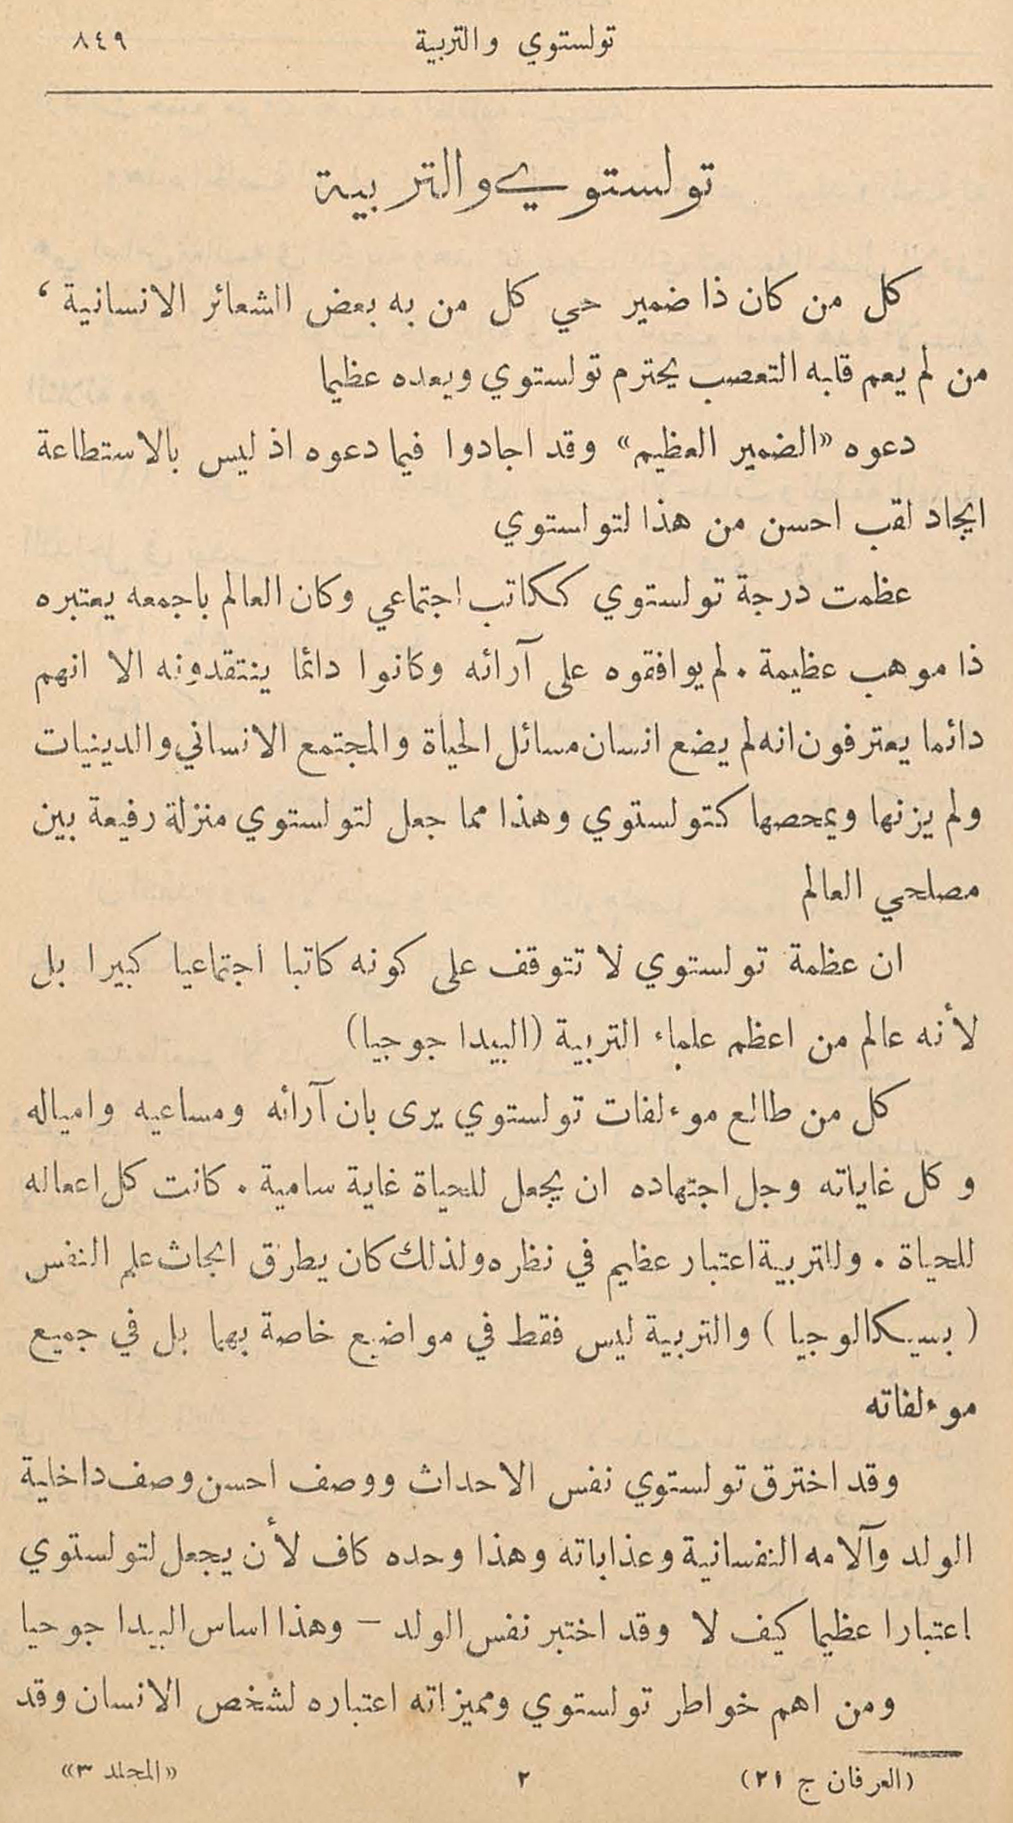 تولستوي والتربية ٨٤٩
تولستوي والتربية
كل من كان ذا ضمير حي كل من به بعض الشعائر الانسانية ،
من لم يعم قلبه التعصب يحترم تولستوي ويعده عظيما
دعوه «الضمير العظيم» وقد اجادوا فيما دعوه اذ ليس بالاستطاعة
ايجاد لقب احسن من هذا لتولستوي
عظمت درجة تولستوي ككاتب اجتماعي وكان العالم باجمعه يعتبره
ذا موهب عظيمة . لم يوافقوه على آرائه وكانوا دائما ينتقدونه الا انهم
دائما يعترفون انه لم يضع انسان مسائل الحياة والمجتمع الانساني والدينيات
ولم يزنها ويمحصها كتولستوي وهذا مما جعل لتولستوي منزلة رفيعة بين
مصلحي العالم
ان عظمة تولستوي لا تتوقف على كونه كاتبا اجتماعيا كبيرا بل
لأنه عالم من اعظم علماء التربية (البيدا جوجيا)
كل من طالع موءلفات تولستوي يرى بان آرائه ومساعيه وامياله
و كل غاياته وجل اجتهاده ان يجعل للحياة غاية سامية . كانت كل اعماله
للحياة . وللتربية اعتبار عظيم في نظره ولذلك كان يطرق ابحاث علم النفس
( بسيكالوجيا ) والتربية ليس فقط في مواضيع خاصة بهما بل في جميع
موءلفاته
وقد اخترق تولستوي نفس الاحداث ووصف احسن وصف داخلية
الولد وآلامه النفسانية وعذاباته وهذا وحده كاف لأن يجعل لتولستوي
اعتبارا عظيما كيف لا وقد اختبر نفس الولد – وهذا اساس البيدا جوجيا
ومن اهم خواطر تولستوي ومميزاته اعتباره لشخص الانسان وقد
(العرفان ج ٢١) ٢ «المجلد ٣»